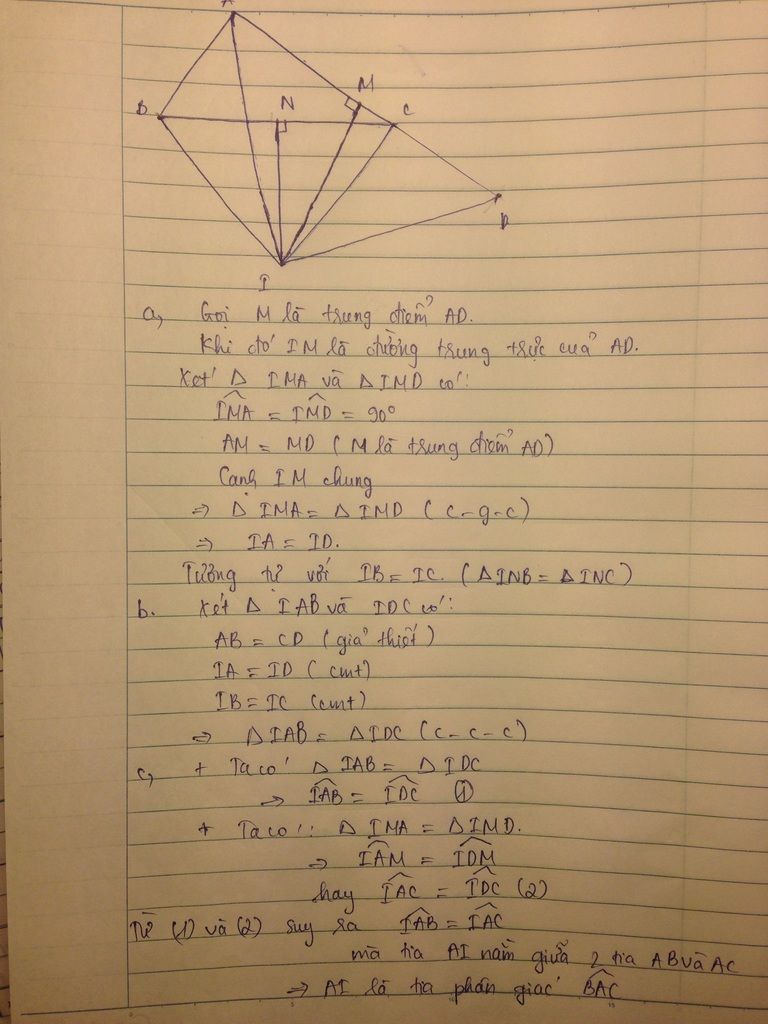 A
B
N
M
C
D
I
a, Gọi M là trung điểm AD.
Khi đó IM là đường trung trực của AD.
Xét Δ IMA và Δ IMD có:
$\widehat{IMA}$ = $\widehat{IMD}$ = 90°
AM = MD (M là trung điểm AD)
Cạnh IM chung
⇒ Δ IMA = Δ IMD (c-g-c)
⇒ IA = ID.
Tương tự với IB = IC. (ΔINB = ΔINC)
b. Xét Δ IAB và IDC có:
AB = CD (giả thiết)
IA = ID (cmt)
IB = IC (cmt)
⇒ ΔIAB = ΔIDC (c-c-c)
c, + Ta có Δ IAB = Δ IDC
⇒ $\widehat{IAB}$ = $\widehat{IDC}$ ①
+ Ta có: Δ IMA = Δ IMD.
⇒ $\widehat{IAM}$ = $\widehat{IDM}$
hay $\widehat{IAC}$ = $\widehat{IDC}$ (2)
Từ (1) và (2) suy ra $\widehat{IAB}$ = $\widehat{IAC}$
mà tia AI nằm giữa 2 tia AB và AC
⇒ AI là tia phân giác $\widehat{BAC}$